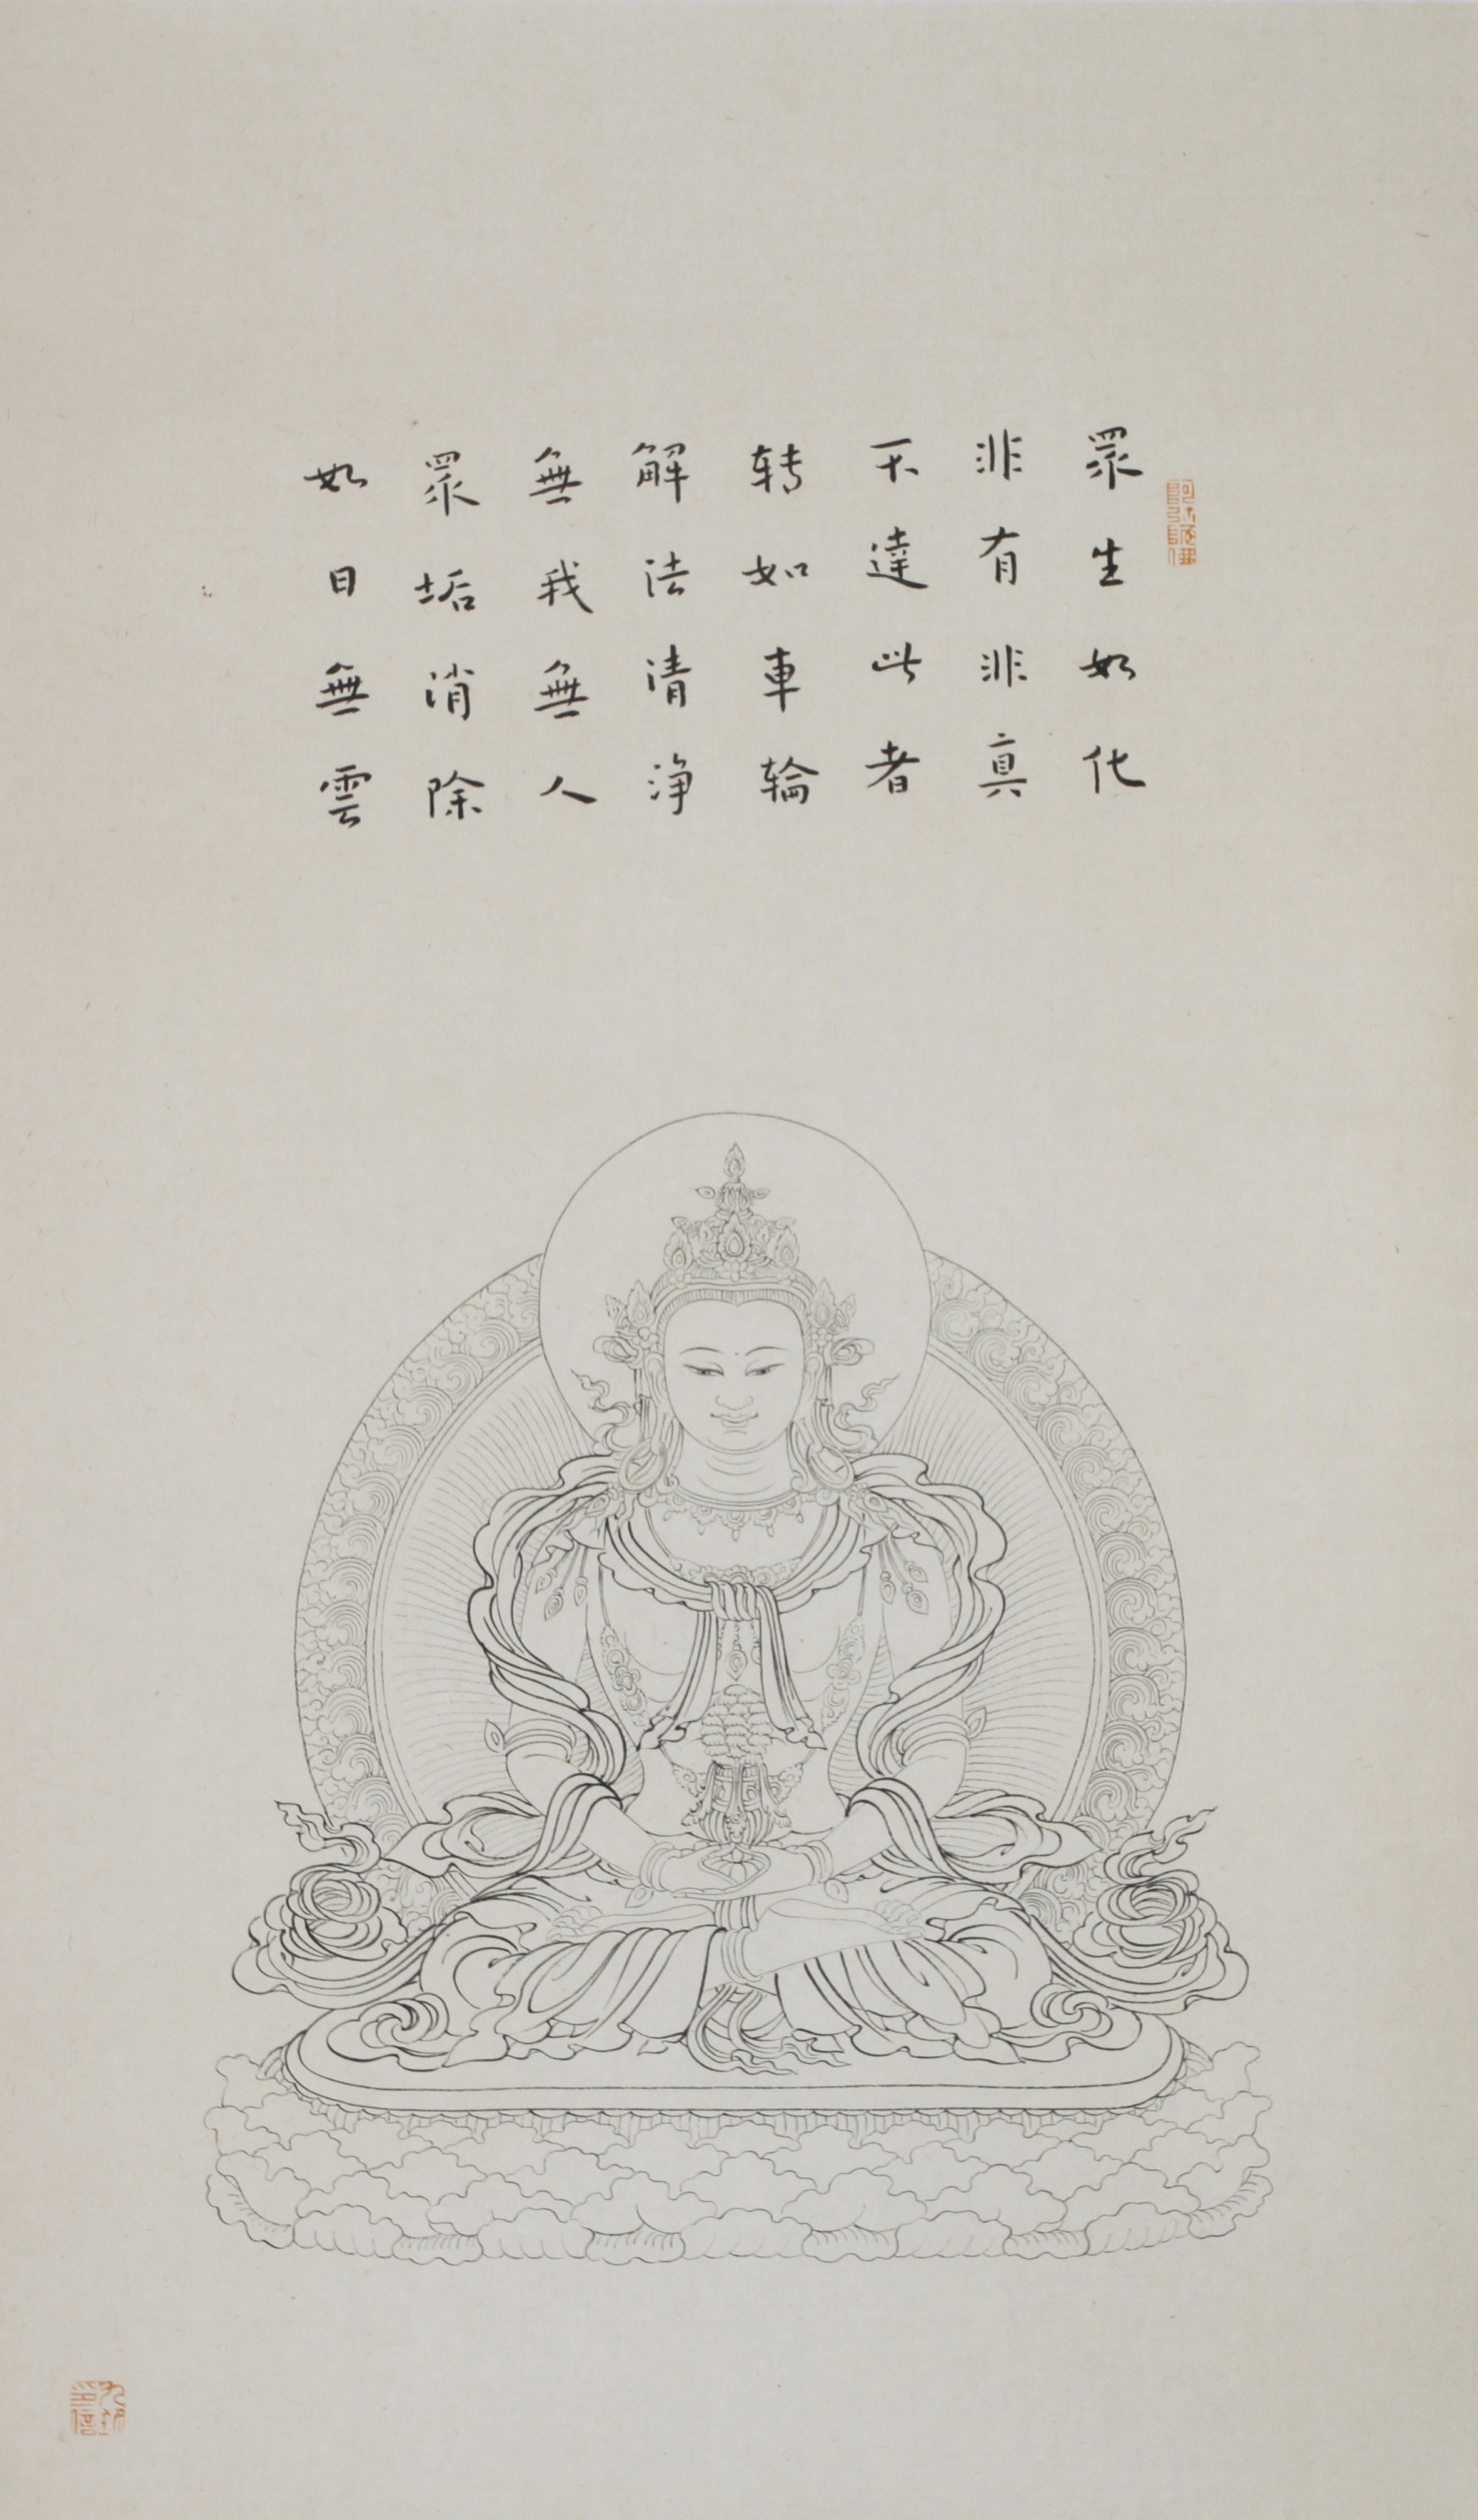 眾生如化
非有非真
不達此者
转如車輪
解法清净
無我無人
眾垢消除
如日無雲